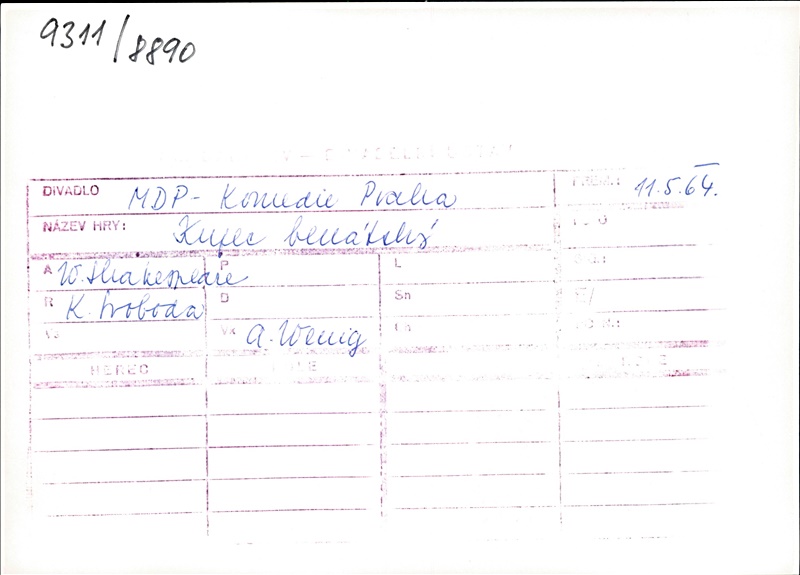 9311/8890
DIVADLO MDP - Komedie Praha PREM.: 11.5.64.
NÁZEV HRY: Kupec benátský
A W. Shakespeare P L
R K. Svoboda D Sn
Vk A. Wenig
HEREC